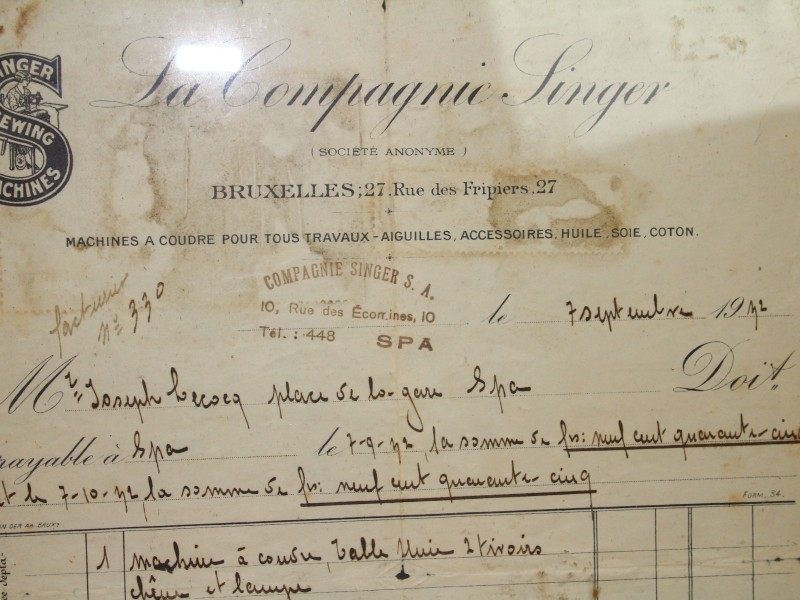 SINGER
SEWING
MACHINES
La Compagnie Singer
(SOCIÉTÉ ANONYME)
BRUXELLES; 27, Rue des Fripiers, 27
MACHINES A COUDRE POUR TOUS TRAVAUX - AIGUILLES, ACCESSOIRES, HUILE, SOIE, COTON.
facture
N° 330
COMPAGNIE SINGER S. A.
10, Rue des Écomines, 10
Tél.: 448 SPA
le 7 septembre 1942
Mr Joseph Lecocq place de la gare Spa Doit
payable à Spa le 7-9-42 la somme de frs: neuf cent quarante-cinq
et le 7-10-42, la somme de frs: neuf cent quarante-cinq
FORM. 54.
1 machine à coudre, Table Unie 2 tiroirs
chêne et lampe